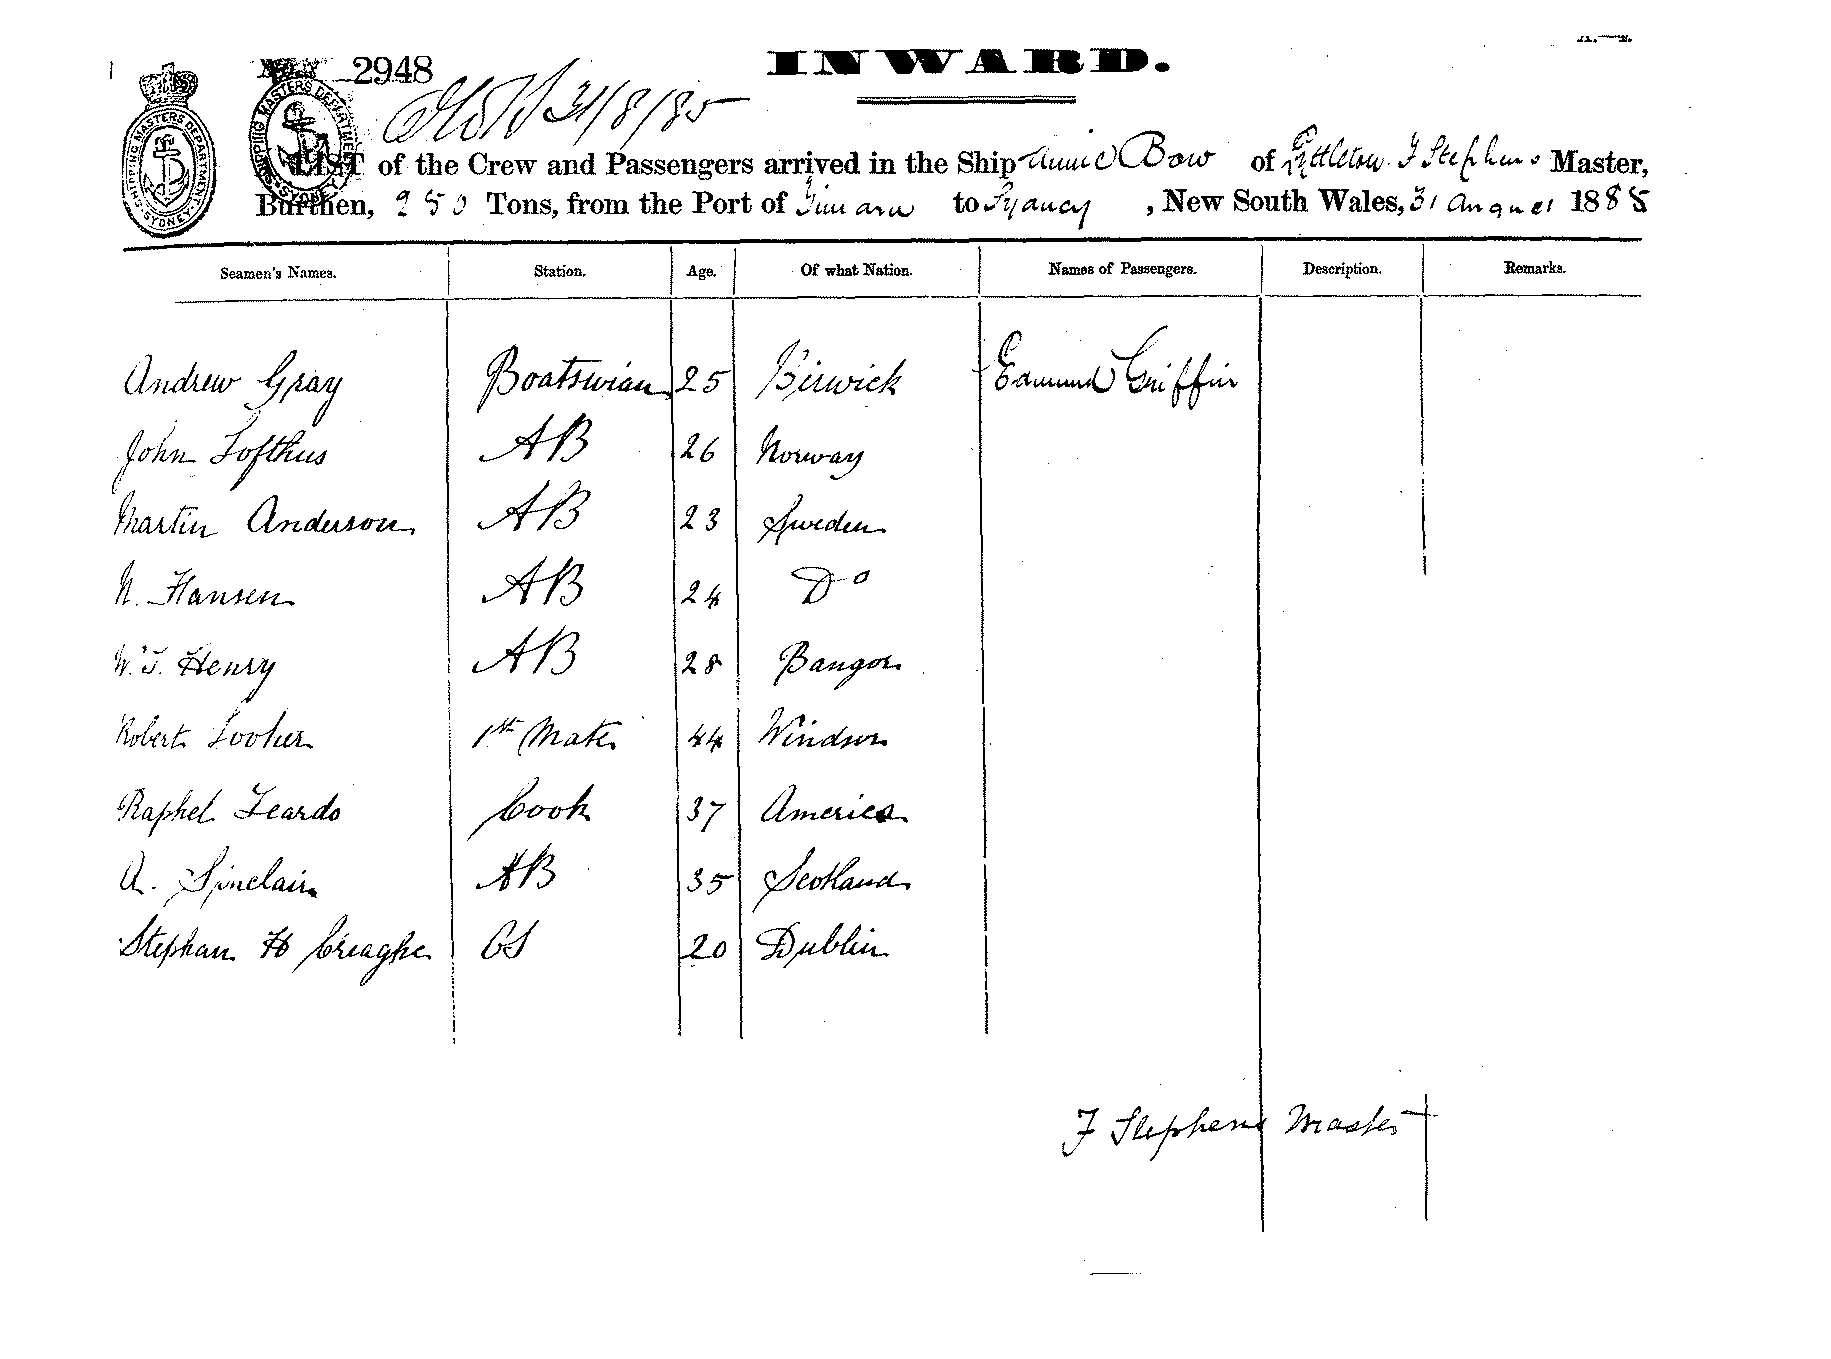 INWARD.
2948
31/8/85
LIST of the Crew and Passengers arrived in the Ship Annie Bow of Lyttleton. F Stephens Master,
Burthen, 250 Tons, from the Port of Timaru to Sydney, New South Wales, 31 August 1885
Seamen's Names. Station. Age. Of what Nation. Names of Passengers. Description. Remarks.
Andrew Gray Boatswian 25 Birwick Edmund Griffin
John Lofthus AB 26 Norway
Martin Anderson AB 23 Sweden
N. Hansen AB 24 Do
W. J. Henry AB 28 Bangor
Robert Looker 1st Mate 44 Windsor
Raphel Leardo Cook 37 America
A. Sinclair AB 35 Scotland
Stephan H Creaghe OS 20 Dublin
F Stephens Master